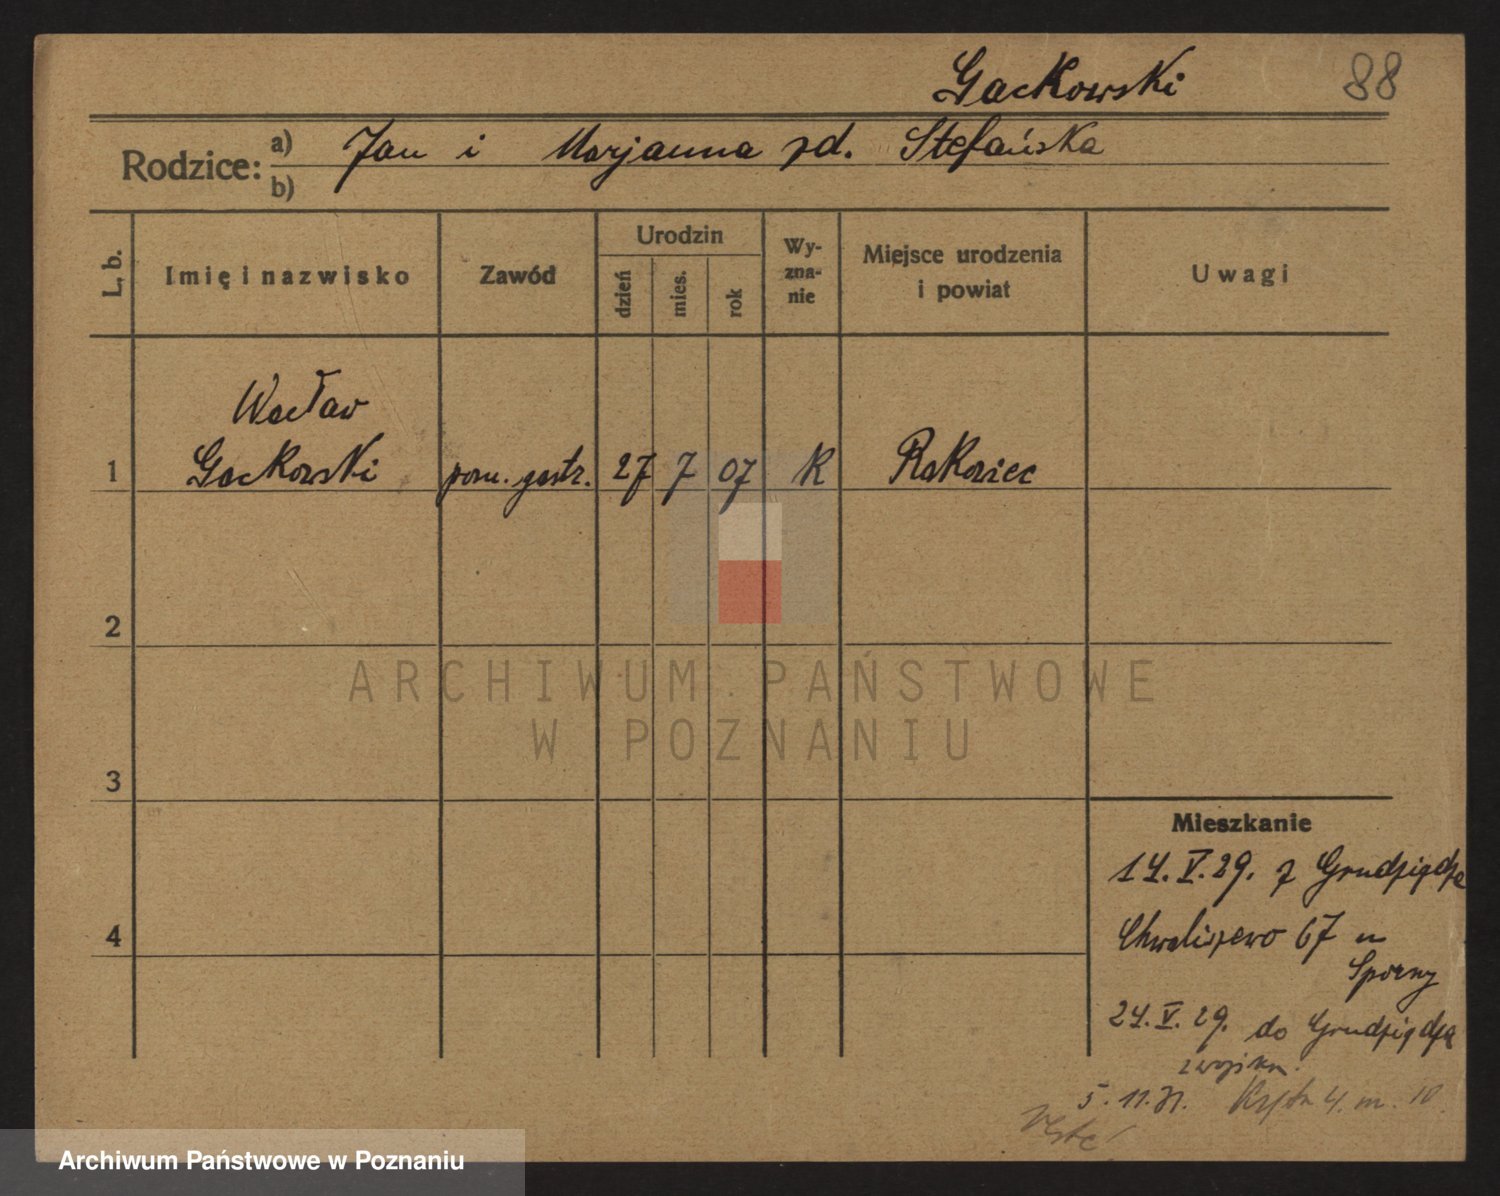 Gackowski 88
Rodzice: a) Jan i Marjanna zd. Stefańska
b)
L. b. Imię i nazwisko Zawód Urodzin dzień mies. rok Wy-zna-nie Miejsce urodzenia i powiat Uwagi
Wacław
1 Gackowski pom. gastr. 27 7 07 K Rakowiec
2
ARCHIWUM PAŃSTWOWE
W POZNANIU
3
Mieszkanie
14. V. 29. z Grudziądza
4 Chwaliszewo 67 u
24. V. 29. do Grudziądza
5. 11. 31. 4. m. 10
Archiwum Państwowe w Poznaniu